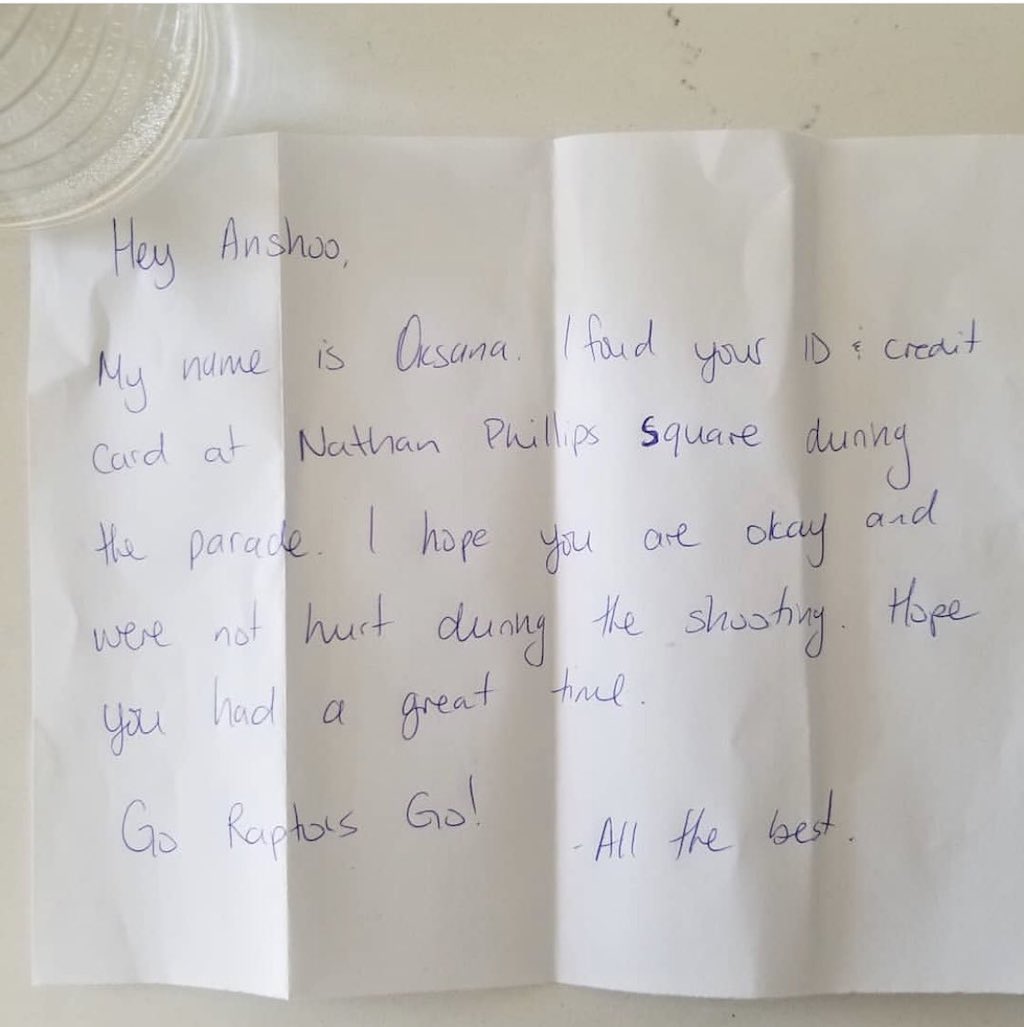 Hey Anshoo,
My name is Oksana. I foud your ID & credit
card at Nathan Phillips Square during
the parade. I hope you are okay and
were not hurt during the shooting. Hope
you had a great time.
Go Raptors Go!
- All the best.